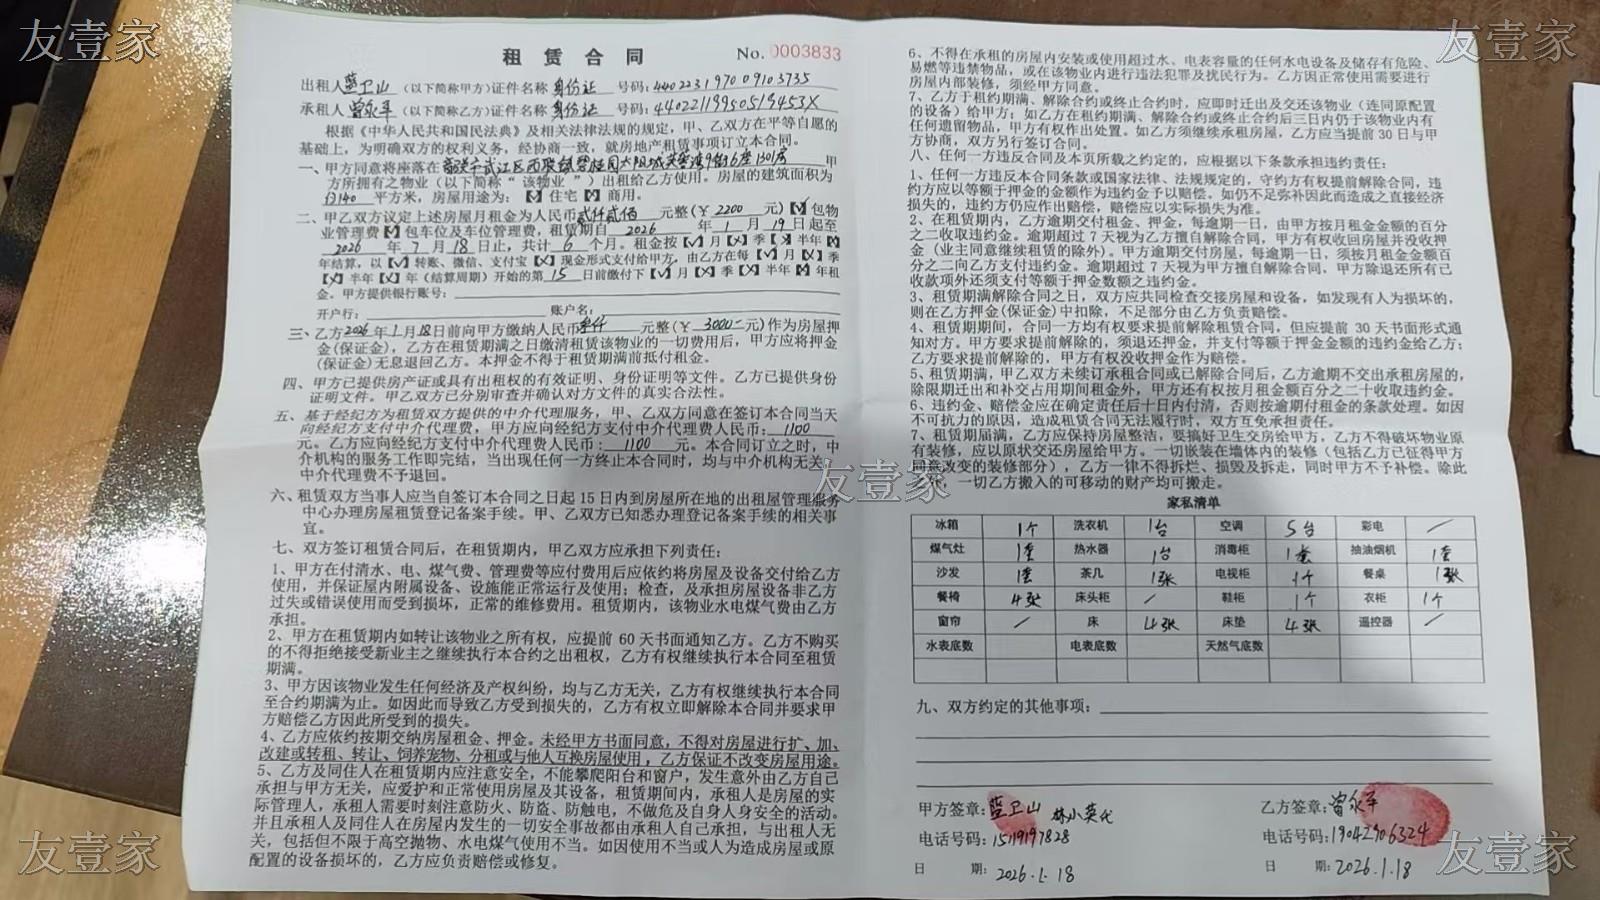 友壹家
友壹家
租赁合同 No.0003833
出租人蓝卫山（以下简称甲方）证件名称身份证 号码:440223197009103735
承租人曾永平（以下简称乙方）证件名称身份证 号码:44022119950519453X
根据《中华人民共和国民法典》及相关法律法规的规定，甲、乙双方在平等自愿的
基础上，为明确双方的权利义务，经协商一致，就房地产租赁事项订立本合同。
一、甲方同意将座落在韶关市武江区西联镇碧桂园太阳城芙蓉湾9街6座1301房 甲
方所拥有之物业（以下简称“该物业”）出租给乙方使用。房屋的建筑面积为
约140 平方米，房屋用途为： 住宅 商用。
二、甲乙双方议定上述房屋月租金为人民币贰仟贰佰 元整(￥2200 元) 包物
业管理费 包车位及车位管理费，租赁期自 2026 年 1 月 19 日起至
2026 年 7 月 18 日止，共计 6 个月。租金按【√】月【X】季【X】半年
年结算，以【√】转账、微信、支付宝【X】现金形式支付给甲方，由乙方在每【√】月【X】季
【X】半年【X】年（结算周期）开始的第 15 日前缴付下【√】月【X】季【X】半年 年租
金。甲方提供银行账号：
开户行： 账户名：
三、乙方2026年1月18日前向甲方缴纳人民币叁仟 元整(￥3000 元)作为房屋押
金(保证金)，乙方在租赁期满之日缴清租赁该物业的一切费用后，甲方应将押金
(保证金)无息退回乙方。本押金不得于租赁期满前抵付租金。
四、甲方已提供房产证或具有出租权的有效证明、身份证明等文件。乙方已提供身份
证明文件。甲乙双方已分别审查并确认对方文件的真实合法性。
五、基于经纪方为租赁双方提供的中介代理服务，甲、乙双方同意在签订本合同当天
向经纪方支付中介代理费，甲方应向经纪方支付中介代理费人民币：1100
元。乙方应向经纪方支付中介代理费人民币：1100 元。本合同订立之时，中
介机构的服务工作即完结，当出现任何一方终止本合同时，均与中介机构无关，
中介代理费不予退回。
六、租赁双方当事人应当自签订本合同之日起15日内到房屋所在地的出租屋管理服务
中心办理房屋租赁登记备案手续。甲、乙双方已知悉办理登记备案手续的相关事
宜。
七、双方签订租赁合同后，在租赁期内，甲乙双方应承担下列责任：
1、甲方在付清水、电、煤气费、管理费等应付费用后应依约将房屋及设备交付给乙方
使用，并保证屋内附属设备、设施能正常运行及使用；检查，及承担房屋设备非乙方
过失或错误使用而受到损坏，正常的维修费用。租赁期内，该物业水电煤气费由乙方
承担。
2、甲方在租赁期内如转让该物业之所有权，应提前60天书面通知乙方。乙方不购买
的不得拒绝接受新业主之继续执行本合约之出租权，乙方有权继续执行本合同至租赁
期满。
3、甲方因该物业发生任何经济及产权纠纷，均与乙方无关，乙方有权继续执行本合同
至合约期满为止。如因此而导致乙方受到损失的，乙方有权立即解除本合同并要求甲
方赔偿乙方因此所受到的损失。
4、乙方应依约按期交纳房屋租金、押金。未经甲方书面同意，不得对房屋进行扩、加、
改建或转租、转让、饲养宠物、分租或与他人互换房屋使用，乙方保证不改变房屋用途。
5、乙方及同住人在租赁期内应注意安全，不能攀爬阳台和窗户，发生意外由乙方自己
承担与甲方无关，应爱护和正常使用房屋及其设备，租赁期间内，承租人是房屋的实
际管理人，承租人需要时刻注意防火、防盗、防触电，不做危及自身人身安全的活动。
并且承租人及同住人在房屋内发生的一切安全事故都由承租人自己承担，与出租人无
关，包括但不限于高空抛物、水电煤气使用不当。如因使用不当或人为造成房屋或原
配置的设备损坏的，乙方应负责赔偿或修复。
6、不得在承租的房屋内安装或使用超过水、电表容量的任何水电设备及储存有危险、
易燃等违禁物品，或在该物业内进行违法犯罪及扰民行为。乙方因正常使用需要进行
房屋内部装修，须经甲方同意。
7、乙方于租约期满、解除合约或终止合约时，应即时迁出及交还该物业（连同原配置
的设备）给甲方；如乙方在租约期满、解除合约或终止合约后三日内仍于该物业内有
任何遗留物品，甲方有权作出处置。如乙方须继续承租房屋，乙方应当提前30日与甲
方协商，双方另行签订合同。
八、任何一方违反合同及本页所载之约定的，应根据以下条款承担违约责任：
1、任何一方违反本合同条款或国家法律、法规规定的，守约方有权提前解除合同，违
约方应以等额于押金的金额作为违约金予以赔偿。如仍不足弥补因此而造成之直接经济
损失的，违约方仍应作出赔偿，赔偿应以实际损失为准。
2、在租赁期内，乙方逾期交付租金、押金，每逾期一日，由甲方按月租金金额的百分
之二收取违约金。逾期超过7天视为乙方擅自解除合同，甲方有权收回房屋并没收押
金（业主同意继续租赁的除外）。甲方逾期交付房屋，每逾期一日，须按月租金金额百
分之二向乙方支付违约金。逾期超过7天视为甲方擅自解除合同，甲方除退还所有已
收款项外还须支付等额于押金数额之违约金。
3、租赁期满解除合同之日，双方应共同检查交接房屋和设备，如发现有人为损坏的，
则在乙方押金(保证金)中扣除，不足部分由乙方负责赔偿。
4、租赁期期间，合同一方均有权要求提前解除租赁合同，但应提前30天书面形式通
知对方。甲方要求提前解除的，须退还押金，并支付等额于押金金额的违约金给乙方；
乙方要求提前解除的，甲方有权没收押金作为赔偿。
5、租赁期满，甲乙双方未续订承租合同或已解除合同后，乙方逾期不交出承租房屋的，
除限期迁出和补交占用期间租金外，甲方还有权按月租金额百分之二十收取违约金。
6、违约金、赔偿金应在确定责任后十日内付清，否则按逾期付租金的条款处理。如因
不可抗力的原因，造成租赁合同无法履行时，双方互免承担责任。
7、租赁期届满，乙方应保持房屋整洁，要搞好卫生交房给甲方，乙方不得破坏物业原
有装修，应以原状交还房屋给甲方。一切嵌装在墙体内的装修（包括乙方已征得甲方
同意改变的装修部分），乙方一律不得拆烂、损毁及拆走，同时甲方不予补偿。除此
之外，一切乙方搬入的可移动的财产均可搬走。
友壹家
家私清单
冰箱 1个 洗衣机 1台 空调 5台 彩电 /
煤气灶 1套 热水器 1台 消毒柜 1套 抽油烟机 1套
沙发 1套 茶几 1张 电视柜 1个 餐桌 1张
餐椅 4张 床头柜 / 鞋柜 1个 衣柜 1个
窗帘 / 床 4张 床垫 4张 遥控器 /
水表底数 电表底数 天然气底数
九、双方约定的其他事项：
甲方签章：蓝卫山 林小英代 乙方签章：曾永平
电话号码：15119197828 电话号码：19042906324
日 期：2026.1.18 日 期：2026.1.18
友壹家
友壹家